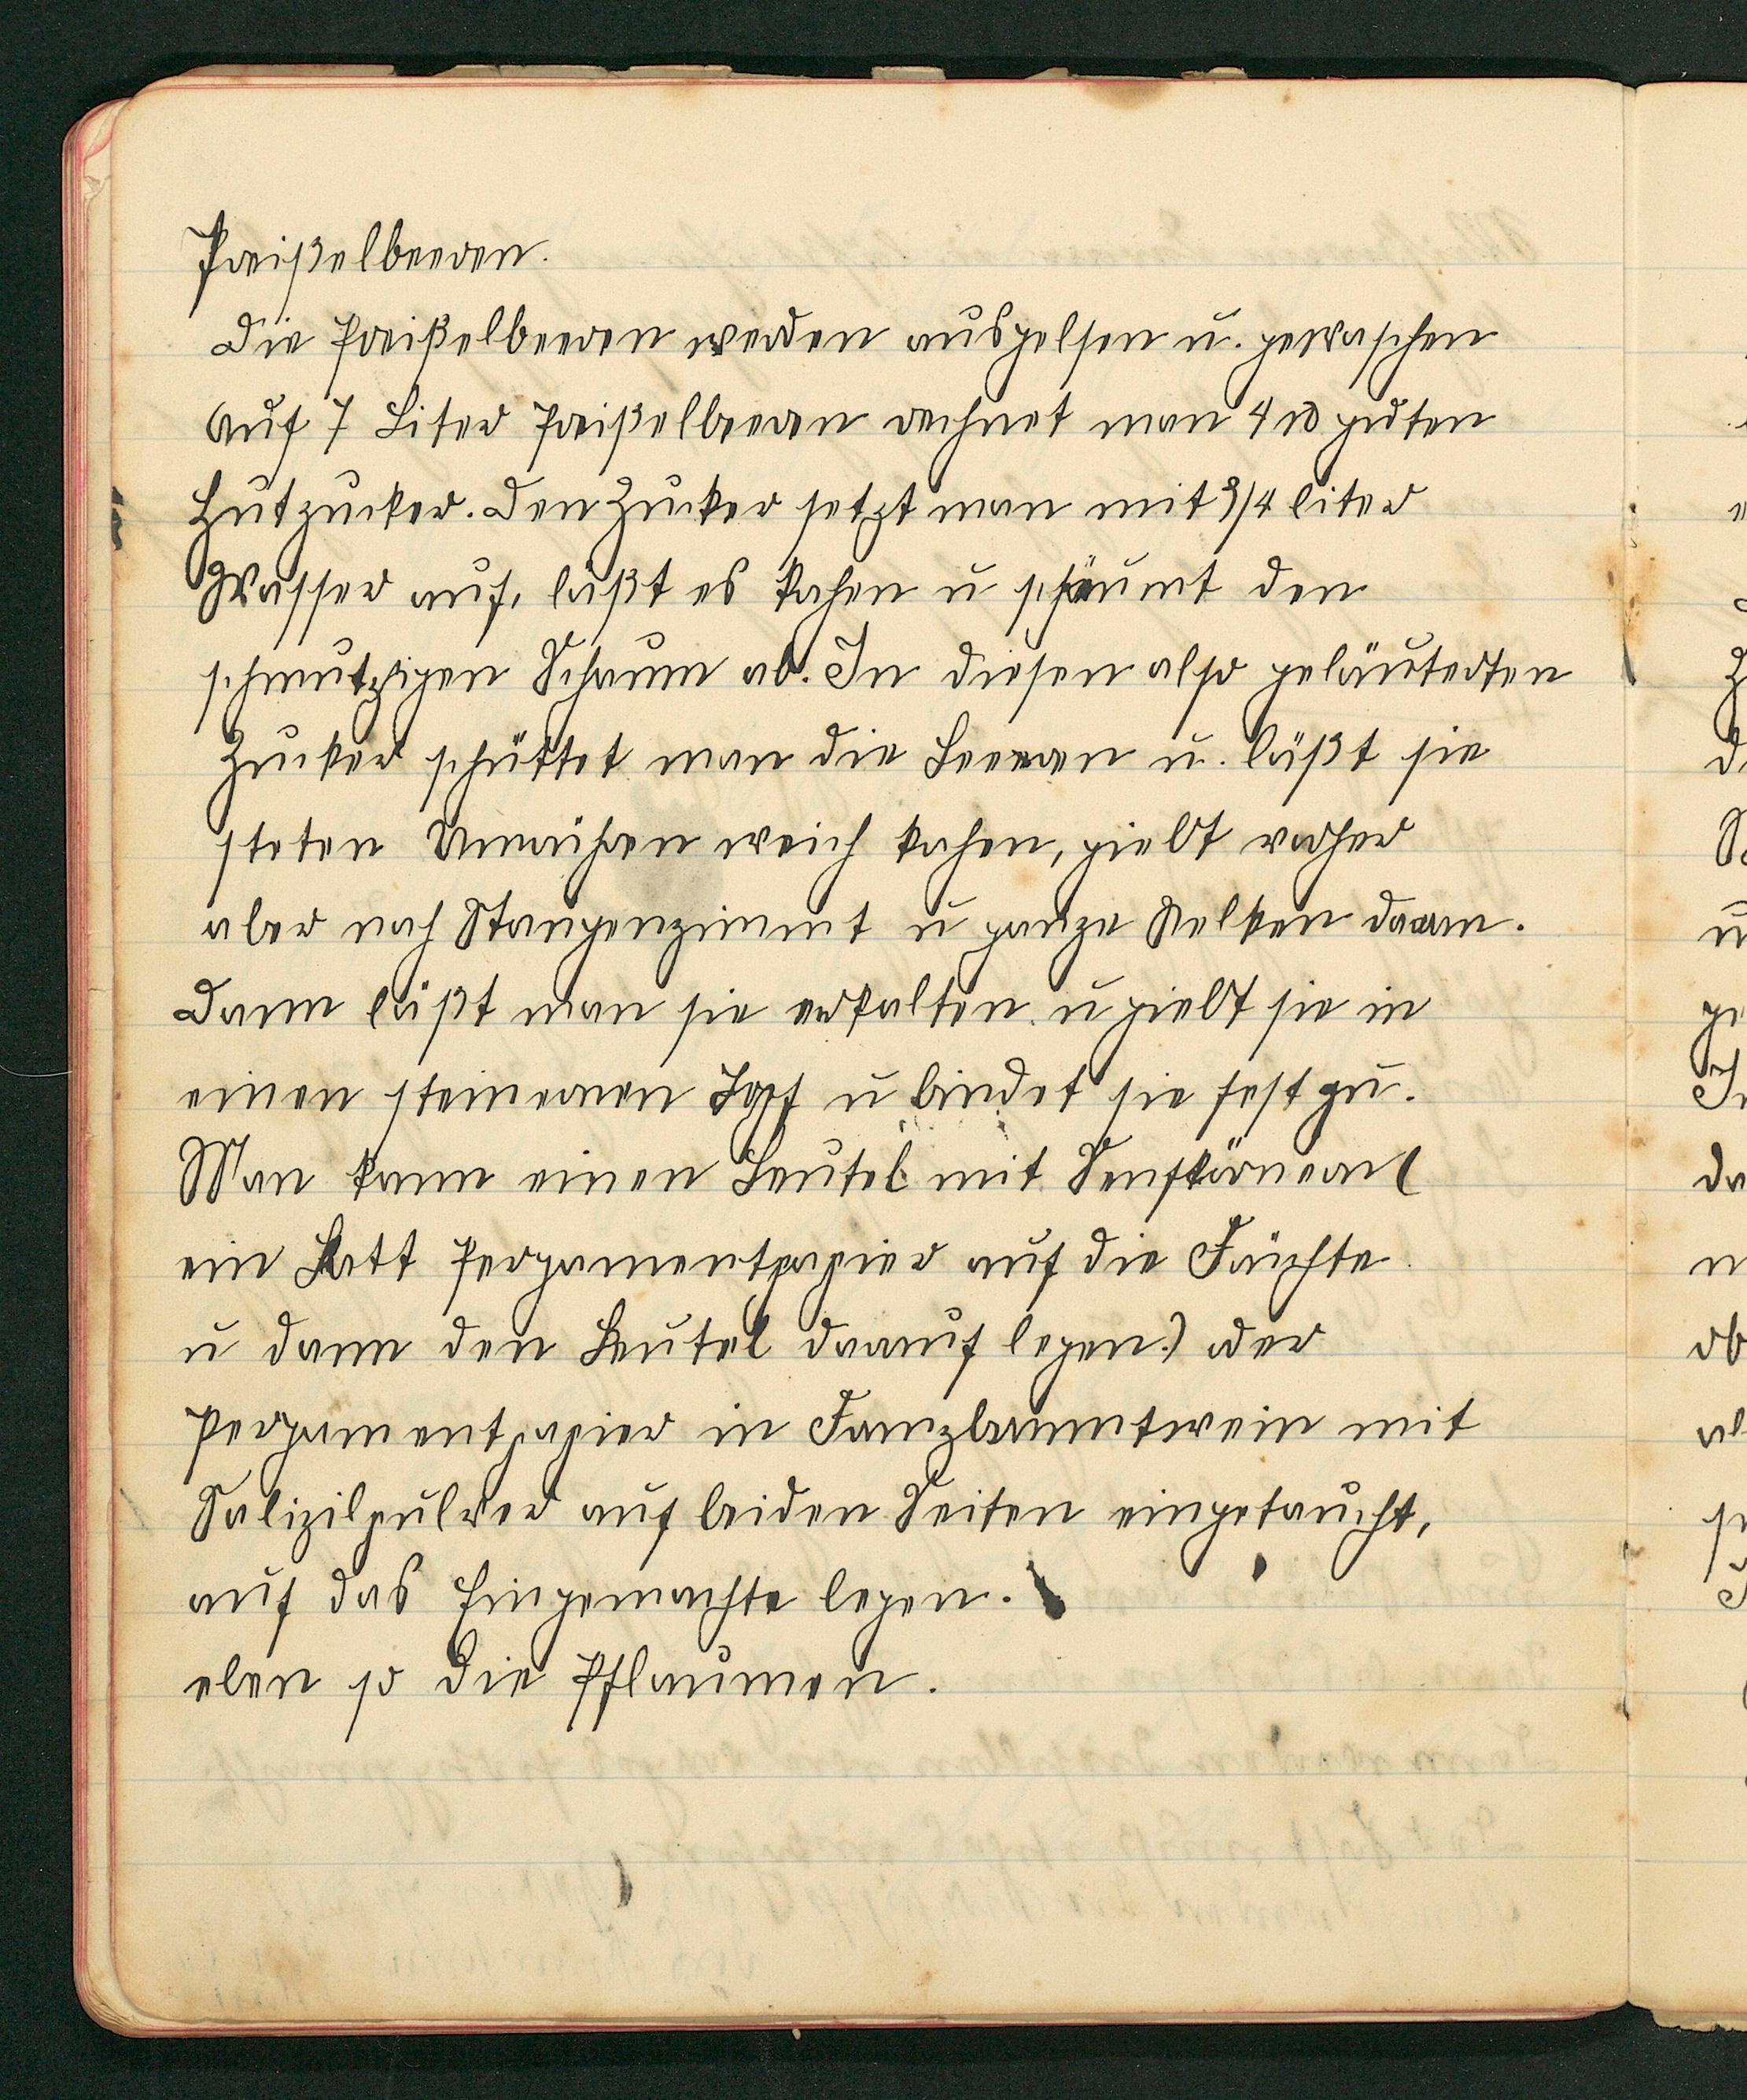 Preißelbeeren.
Die Preißelbeeren werden ausgelesen u. gewaschen
Auf 7 Liter Preißelbeeren rechnet man 4 ℔ guten
Hutzucker. Den Zucker setzt man mit 3/4 liter
Wasser auf, läßt es kochen u schäumt den
schmutzigen Schaum ab. In diesen also geläuterten
Zucker schüttet man die Beeren u. läßt sie
steten Umrühren weich kochen, giebt vorher
aber noch Stangenzimmt u ganze Nelken daran.
Dann läßt man sie erkalten u giebt sie in
einen steinernen Topf u bindet sie fest zu.
Man kann einen Beutel mit Senfkörnern (
ein Blatt Pergamentpapier auf die Früchte
u dann den Beutel darauf legen.) oder
Pergamentpapier in Franzbranntwein mit
Salizilpulver auf beiden Seiten eingetaucht,
auf das Eingemachte legen.
eben so die Pflaumen.